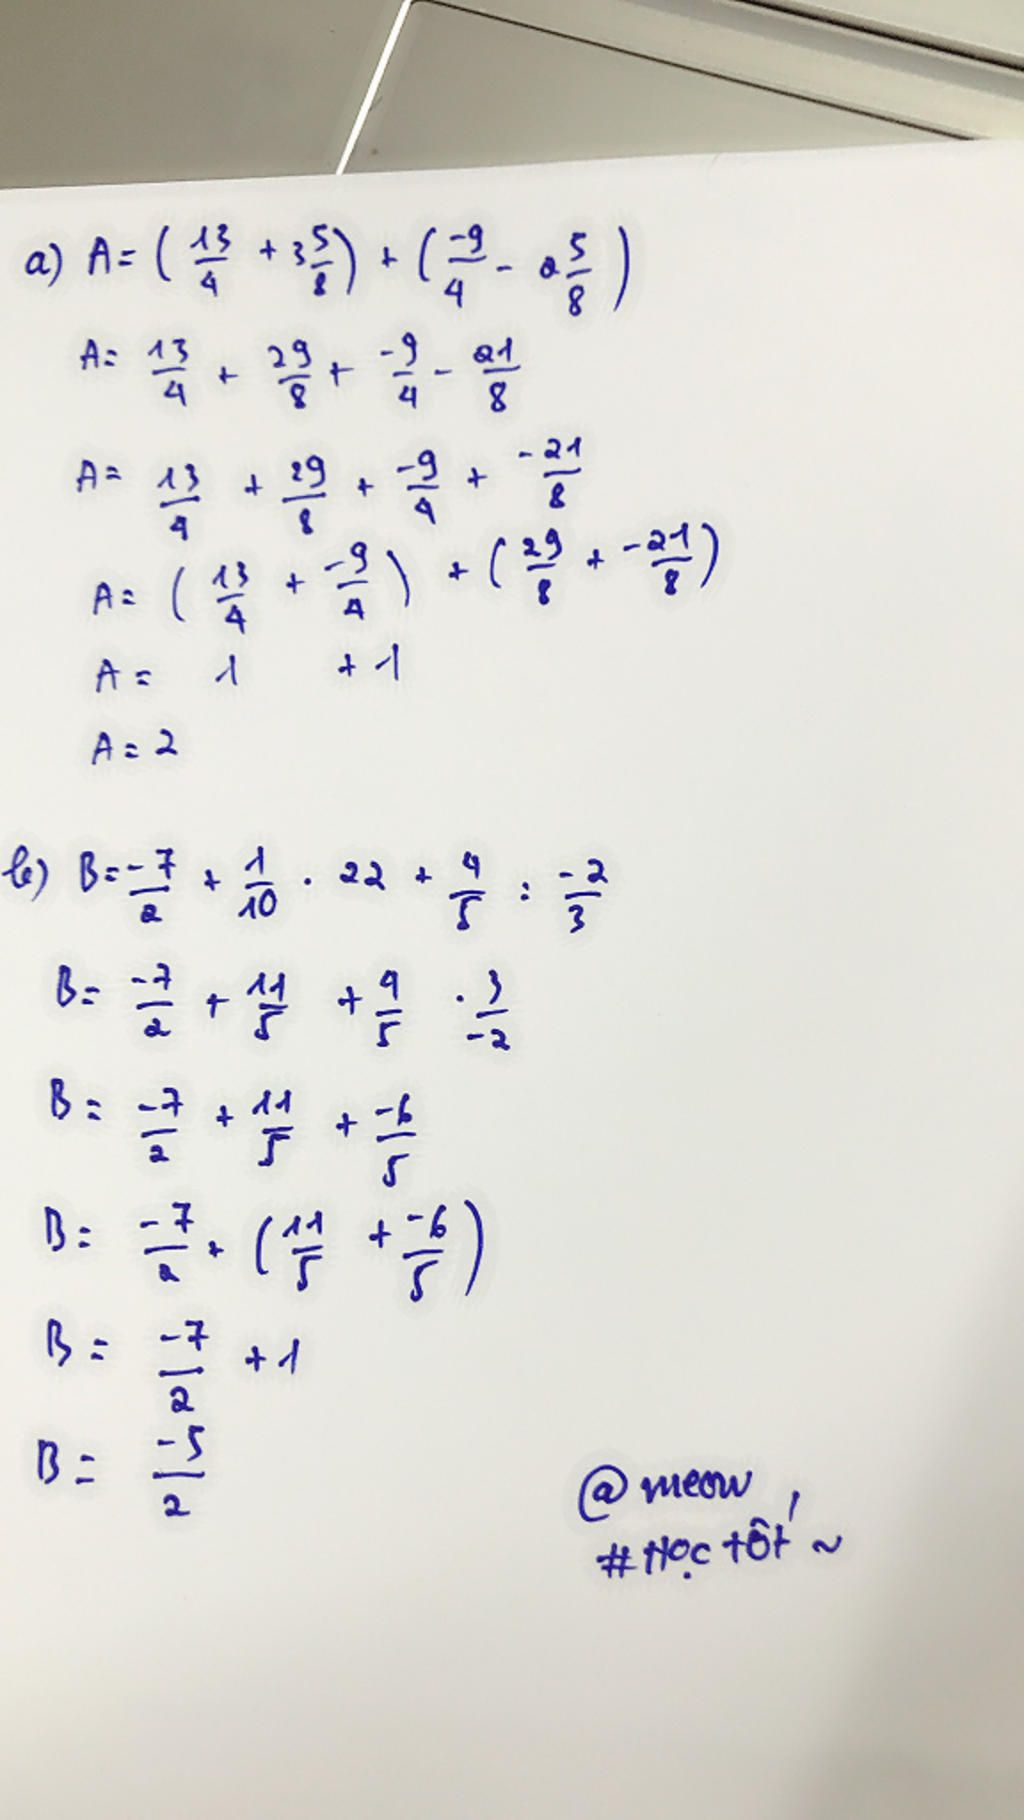 a) A = ( 13/4 + 3 5/8 ) + ( -9/4 - 2 5/8 )
A = 13/4 + 29/8 + -9/4 - 21/8
A = 13/4 + 29/8 + -9/4 + -21/8
A = ( 13/4 + -9/4 ) + ( 29/8 + -21/8 )
A = 1 + 1
A = 2
b) B = -7/2 + 1/10 . 22 + 4/5 : -2/3
B = -7/2 + 11/5 + 4/5 . 3/-2
B = -7/2 + 11/5 + -6/5
B = -7/2 + ( 11/5 + -6/5 )
B = -7/2 + 1
B = -5/2
@meow
#Học tốt ~